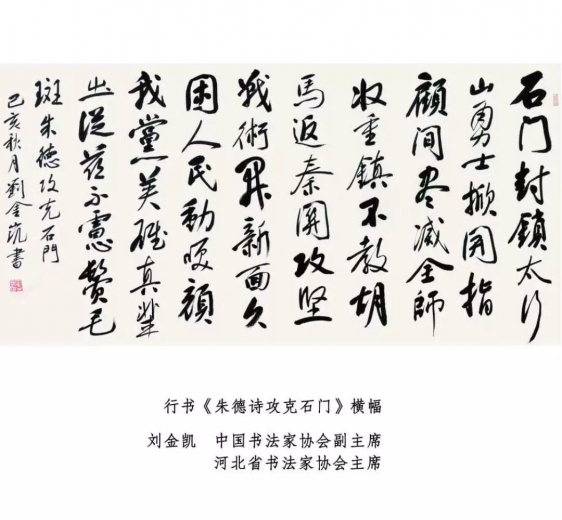 石门封鎖太行
山勇士掀開指
顧间尽滅全師
收重鎮不教胡
馬返秦関攻坚
戰術开新面久
困人民動笑顔
我黨英雄真輩
出從兹不慮鬓毛
斑 朱德攻克石門
己亥秋月劉金凯書
行书《朱德诗攻克石门》横幅
刘金凯 中国书法家协会副主席
河北省书法家协会主席